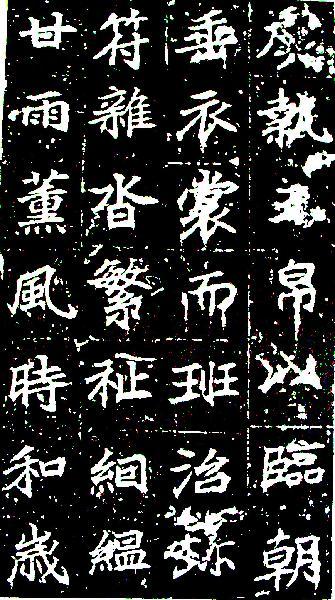 執玉帛以臨朝
垂衣裳而班治珍
符雜沓繁祉絪縕
甘雨薰風時和歲